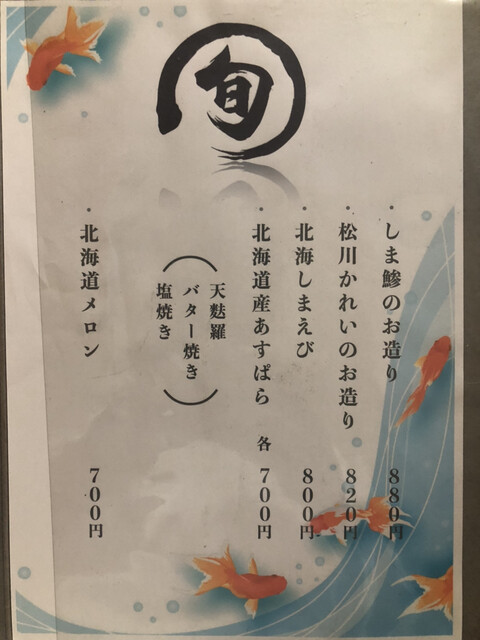 旬
・しま鯵のお造り 880円
・松川かれいのお造り 820円
・北海しまえび 800円
・北海道産あすぱら 各700円
(天麩羅
バター焼き
塩焼き)
・北海道メロン 700円